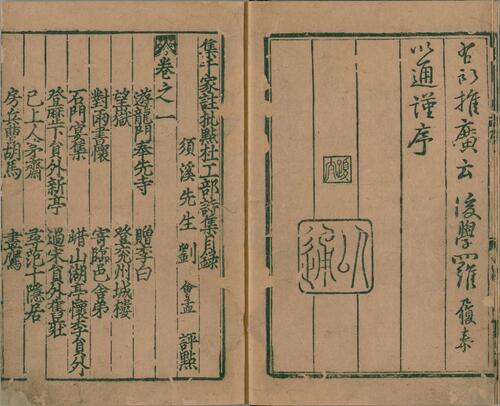 推廣云 後學羅履泰
以通謹序
以通
集千家註批點杜工部詩集目錄
須溪先生 劉 會孟 評點
卷之一
遊龍門奉先寺 贈李白
望嶽 登兗州城樓
對雨書懷 寄臨邑舍弟
石門宴集 山湖亭懷李員外
登歷下員外新亭 過宋員外舊莊
已上人茅齋 尋范十隱居
房兵曹胡馬 畫鷹